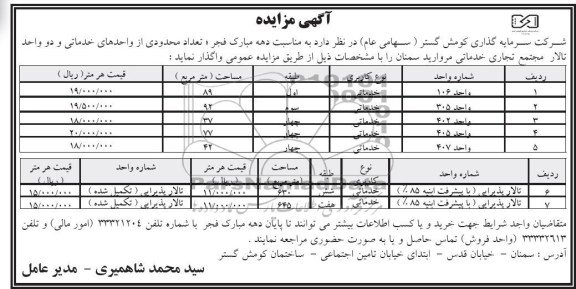 آگهی مزایده
شرکت سرمایه گذاری کومش گستر ( سهامی عام) در نظر دارد به مناسبت دهه مبارک فجر ؛ تعداد محدودی از واحدهای خدماتی و دو واحد
تالار مجتمع تجاری خدماتی مروارید سمنان را با مشخصات ذیل از طریق مزایده عمومی واگذار نماید :
ردیف شماره واحد نوع کاربری طبقه مساحت ( متر مربع ) قیمت هر متر( ریال )
۱ واحد ۱۰۶ خدماتی اول ۸۹ ۱۹/۰۰۰/۰۰۰
۲ واحد ۳۰۵ خدماتی سوم ۹۲ ۱۹/۵۰۰/۰۰۰
۳ واحد ۴۰۲ خدماتی چهار ۳۷ ۱۸/۰۰۰/۰۰۰
۴ واحد ۴۰۵ خدماتی چهار ۷۷ ۲۰/۰۰۰/۰۰۰
۵ واحد ۴۰۷ خدماتی چهار ۴۲ ۱۸/۰۰۰/۰۰۰
ردیف شماره واحد نوع کاربری طبقه مساحت قیمت هر متر شماره واحد قیمت هر متر
۶ تالار پذیرایی ( با پیشرفت ابنیه ۸۵٪) خدماتی شش ۶۳۰ ۱۱/۰۰۰/۰۰۰ تالار پذیرایی ( تکمیل شده ) ۱۵/۰۰۰/۰۰۰
۷ تالار پذیرایی ( با پیشرفت ابنیه ۸۵٪) خدماتی هفت ۶۴۵ ۱۱/۰۰۰/۰۰۰ تالار پذیرایی ( تکمیل شده ) ۱۵/۰۰۰/۰۰۰
متقاضیان واجد شرایط جهت خرید و یا کسب اطلاعات بیشتر می توانند تا پایان دهه مبارک فجر با شماره تلفن ۳۳۳۲۱۲۰۴ (امور مالی) و تلفن
۳۳۳۳۲۶۱۳ (واحد فروش) تماس حاصل و یا به صورت حضوری مراجعه نمایند .
آدرس : سمنان – خیابان قدس – ابتدای خیابان تامین اجتماعی – ساختمان کومش گستر
سید محمد شاهمیری – مدیر عامل